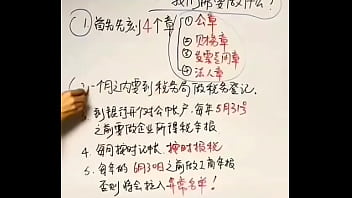 我们需要做什么？
① 首先先刻4个章
① 公章
② 财务章
③ 发票专用章
④ 法人章
一个月之内要到税务局做税务登记.
到银行开对公帐户.每年5月31号
之前要做企业所得税年报
4. 每月按时记帐.按时报税
5. 每年的6月30日之前做工商年报
否则将会拉入异常名单!